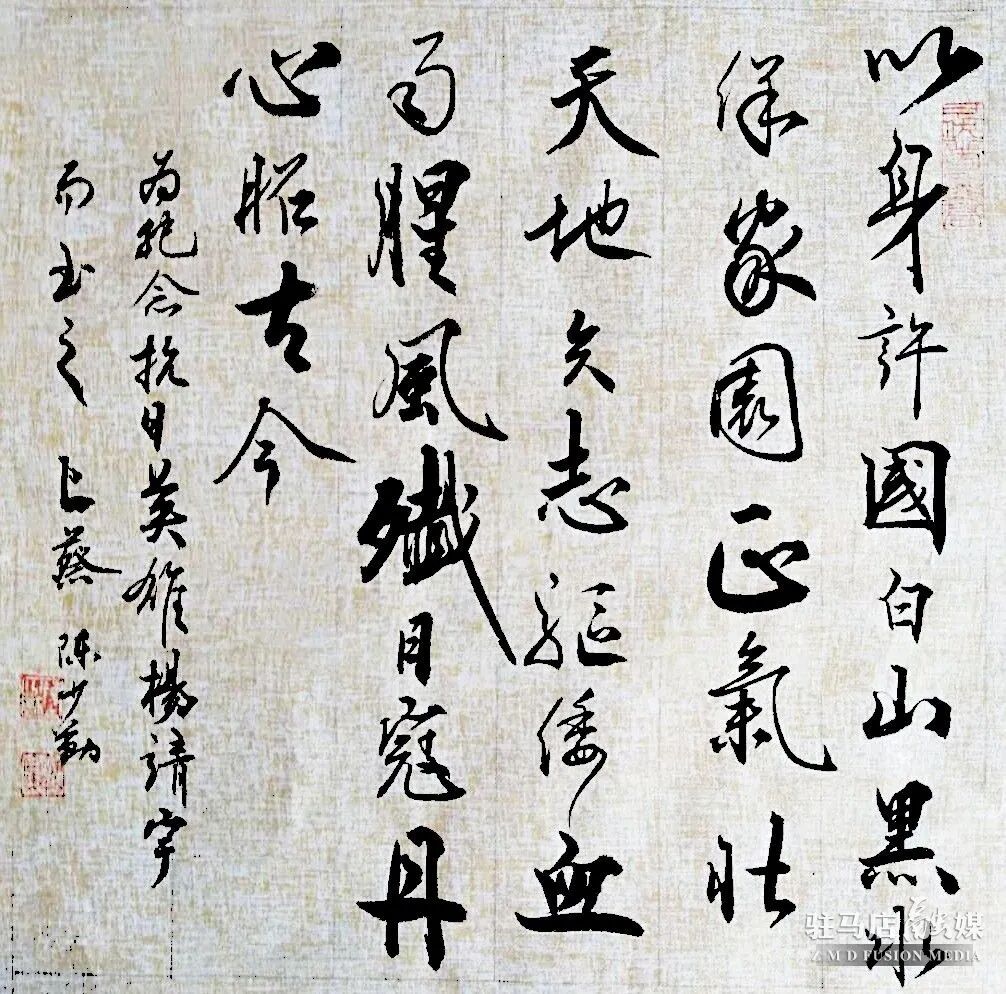 以身許國白山黑水
保家園正氣壯
天地矢志驅倭血
雨腥風殲日寇丹
心昭古今
为紀念抗日英雄楊靖宇
而书之 上蔡 陈少勤
驻马店融媒
Z M D FUSION MEDIA